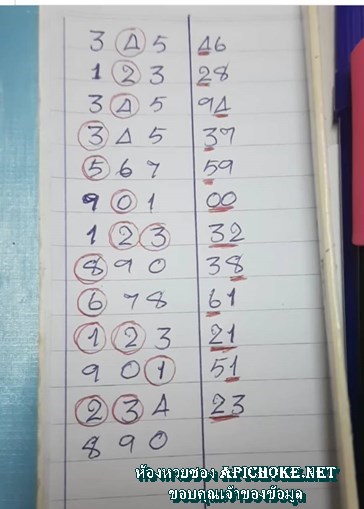 3 4 5 46
1 2 3 28
3 4 5 94
3 4 5 37
5 6 7 59
9 0 1 00
1 2 3 32
8 9 0 38
6 7 8 61
1 2 3 21
9 0 1 51
2 3 4 23
8 9 0
ห้องหวยซอง APICHOKE.NET
ขอบคุณเจ้าของข้อมูล